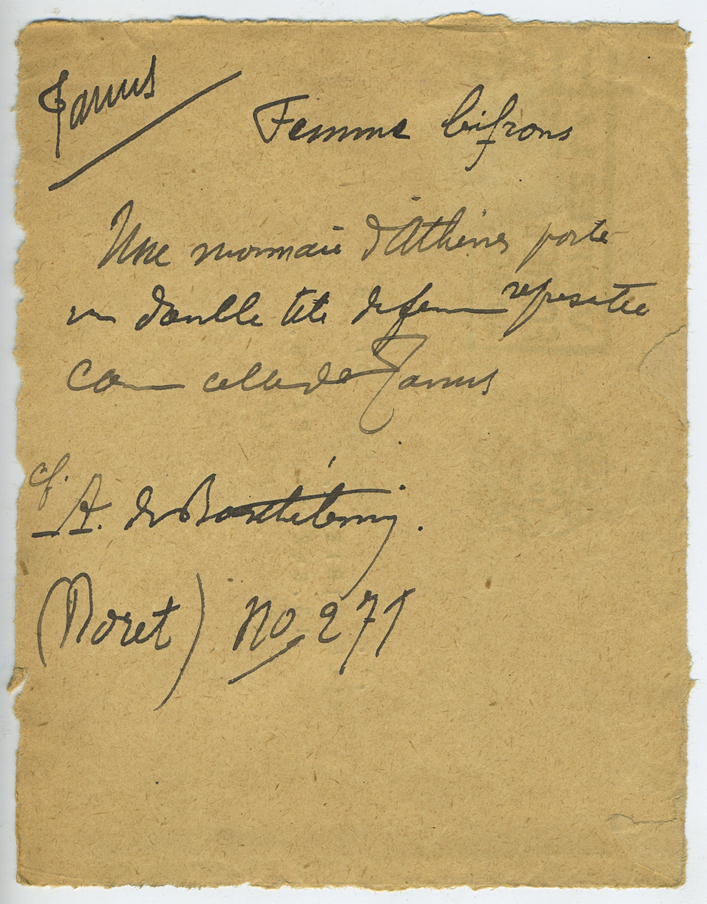 Janus
Femme bifrons
Une monnaie d'Athènes porte
un double tête de femme représentée
comme celle de Janus
cf. A. de Barthélemy.
(Moret) no 271